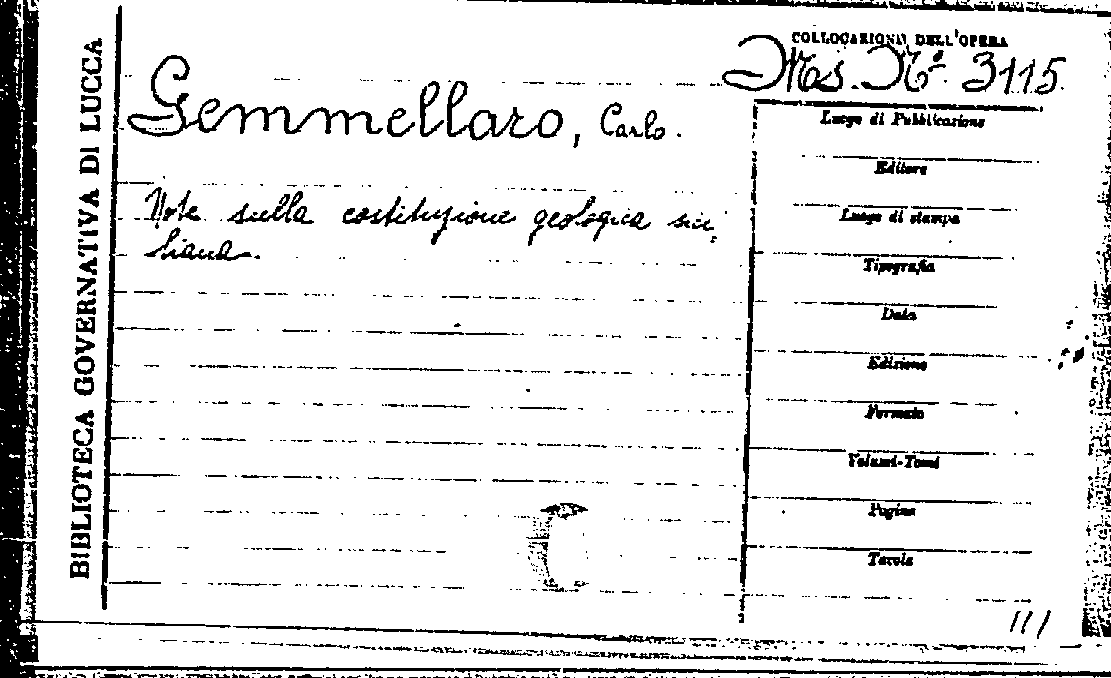 BIBLIOTECA GOVERNATIVA DI LUCCA
COLLOCAZIONE DELL'OPERA
Ms. Nº. 3115
Gemmellaro, Carlo.
Note sulla costituzione geologica sici,
liana.
Luogo di Pubblicazione
Editore
Luogo di stampa
Tipografia
Data
Edizione
Formato
Volumi-Tomi
Pagine
Tavole